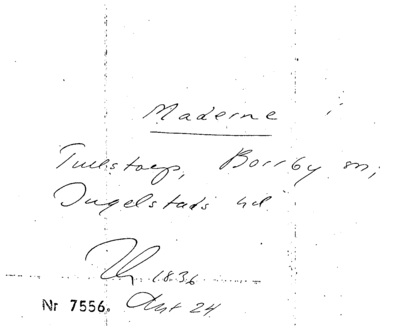 Maderne
Tullstorp, Borrby sn;
Ingelstads hd
1836
Nr 7556. Akt 24